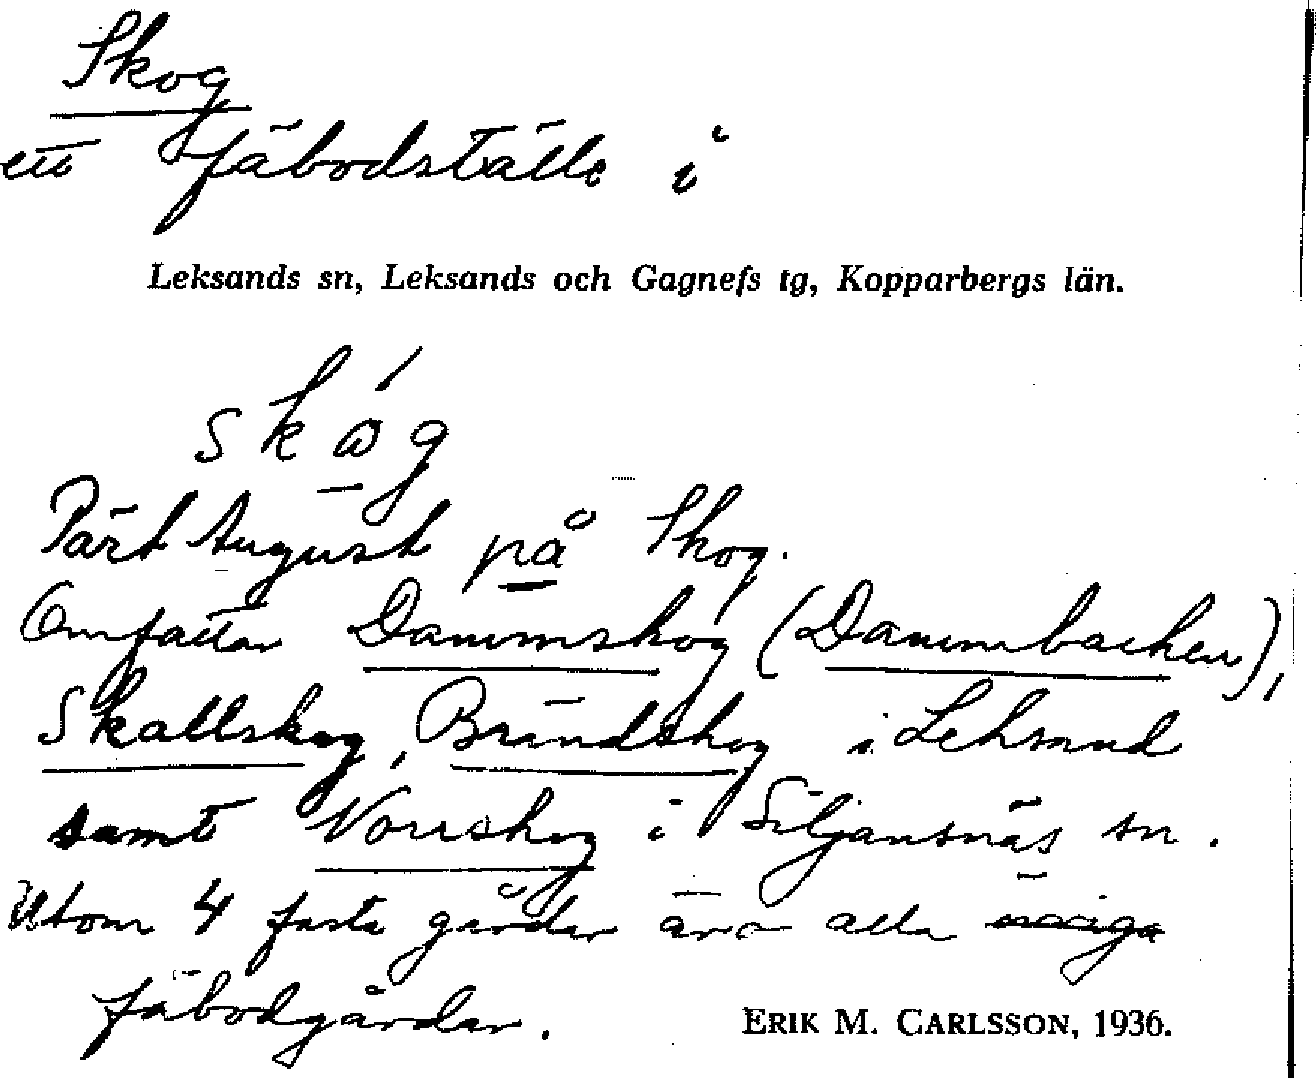 Skog
ett fäbodställe i
Leksands sn, Leksands och Gagnefs tg, Kopparbergs län.
skog
Pärt August på Skog.
Omfattar Dammskog (Dammbacken),
Skallskog, Brändskog i Leksand
samt Norrskog i Siljansnäs sn.
Utom 4 fasta gårdar äro alla övriga
fäbodgårdar.
ERIK M. CARLSSON, 1936.